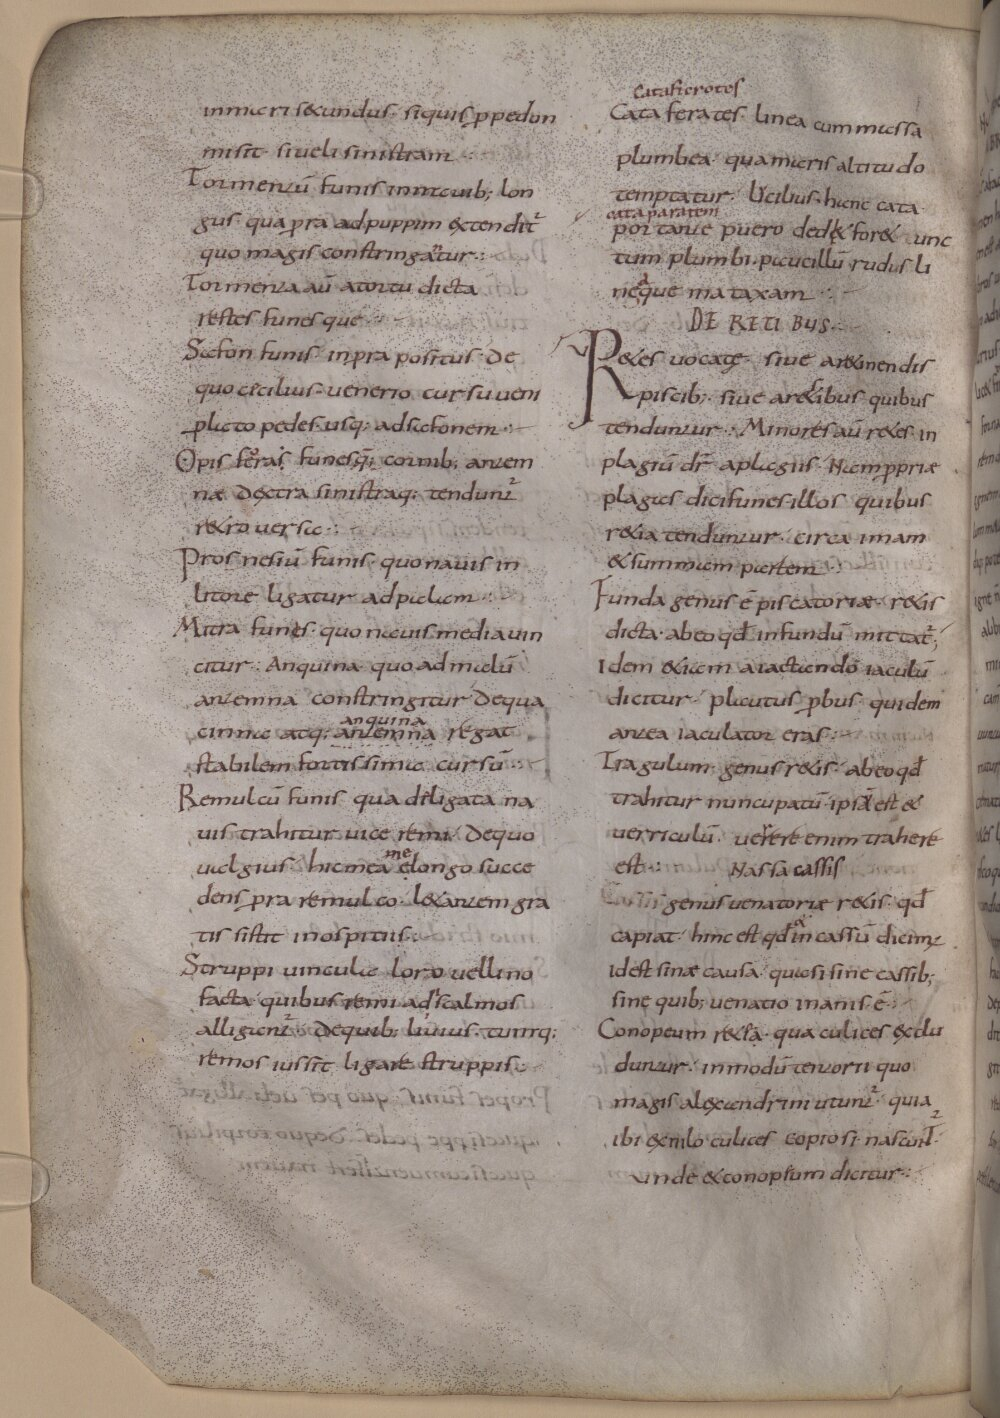 inmari secundus· siquis ꝓpedon
misit· siueli sinistram ·
Tormentū funis innauib; lon
gus· qua pra adpuppim extendit᷑
quo magis constringantur·:
Tormenta aū atortu dicta
restes funesque ·
Safon funis· inpra positus· De
quo cecilius· uenerio cursu ueni
plicto pedes· usq; adsafonem·:
Opis feras funesq; cornib; antem
næ dextra sinistraq; tendunt᷑
retro uersa·:
Prosnesiū funis· quo nauis in
litore ligatur adpalum ·:
Mitra funes· quo nauis media uin
citur·: Anquina quo ad malū
antemna constringitur· Dequa
anquina
cinna atq; antemna regat
stabilem fortissima cursū·:
Remulcū funis qua deligata na
uis trahitur uice remi· Dequo
me
ualgius· hic mea e longo succe
dens pra remulco· letantem gra
tis sistit inospitiis·:
Struppi uincula loro uel lino
facta quibus remi ad scalmos
alligant᷑· Dequib; liuius· tunrq;
remos iussit ligare struppis·:
Catasforotes
Cata ferates· linea cum massa
plumbea· qua maris altitudo
temptatur· Lucilius· hanc cata
cataparatem
portante puero dedet foret unc
tum plumbi· paucillū rudus li
neque mataxam ·:
DE RETIBUS·
Retes uocate· siue aretinendis
piscib;· siue aretibus quibus
tenduntur·: Minores aū retes in
plagiū dr̄ aplagiis· Nam ꝓpriæ
plagas dici funes illos quibus
retia tenduntur· circa imam
& summam partem ·:
Funda genus ē piscatoriæ· retis
dicta· abeo qd̄ infundū mittat᷑;
Idem etiam aiactando iaculū
dicitur· plautus ꝓbus quidem
antea iaculator eras·:
Tragulum· genus retis· abeo qd̄
trahitur nuncupatū· ipsā est &
uerriculū· uerrere enim trahere
est·: Nassa cassis
Cassis genus uenatoriæ retis· qd̄
capiat· hinc est qd̄ in cassū dicim᷒
idest sinæ causa· quasi sine cassib;
sine quib; uenatio inanis ē·
Conopeum retesā· qua culices exclu
duntur· inmodū tentorii quo
magis alexandrini utunt᷑· quia
ibi exnilo culices copiosi nascunt᷑·
unde & conopeum dicitur·: